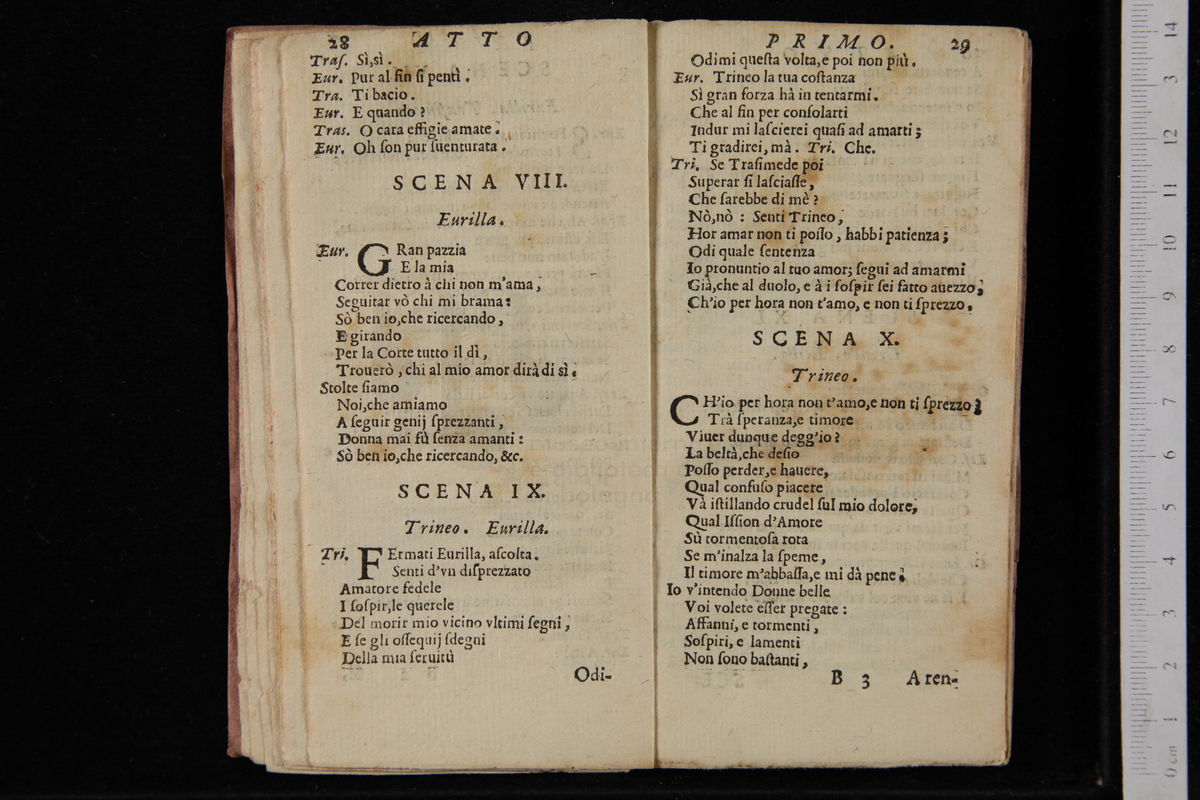 28 ATTO
Traſ. Sì,sì.
Eur. Pur al fin ſi pentì.
Tra. Ti bacio.
Eur. E quando?
Tras. O cara effigie amate.
Eur. Oh ſon pur ſuenturata.
SCENA VIII.
Eurilla.
Eur. GRan pazzia
E la mia
Correr dietro à chi non m'ama,
Seguitar vò chi mi brama:
Sò ben io,che ricercando,
E girando
Per la Corte tutto il dì,
Trouerò, chi al mio amor dirà di sì.
Stolte ſiamo
Noi,che amiamo
A ſeguir genij ſprezzanti,
Donna mai fù ſenza amanti:
Sò ben io,che ricercando, &c.
SCENA IX.
Trineo. Eurilla.
Tri. FErmati Eurilla, aſcolta.
Senti d'vn diſprezzato
Amatore fedele
I ſoſpir,le querele
Del morir mio vicino vltimi ſegni,
E ſe gli oſſequij ſdegni
Della mia ſeruitù
Odi-
PRIMO. 29
Odimi queſta volta,e poi non più.
Eur. Trineo la tua coſtanza
Sì gran forza hà in tentarmi.
Che al fin per conſolarti
Indur mi laſcierei quaſi ad amarti;
Ti gradirei, mà. Tri. Che.
Tri. Se Traſimede poi
Superar ſi laſciaſſe,
Che ſarebbe di mè?
Nò,nò: Senti Trineo,
Hor amar non ti poſſo, habbi patienza;
Odi quale ſentenza
Io pronuntio al tuo amor; ſegui ad amarmi
Già,che al duolo, e à i ſoſpir ſei fatto auezzo;
Ch'io per hora non t'amo, e non ti ſprezzo.
SCENA X.
Trineo.
CH'io per hora non t'amo,e non ti ſprezzo;
Trà ſperanza,e timore
Viuer dunque degg'io?
La beltà,che deſio
Poſſo perder,e hauere,
Qual confuſo piacere
Và iſtillando crudel ſul mio dolore,
Qual Iſſion d'Amore
Sù tormentoſa rota
Se m'inalza la ſpeme,
Il timore m'abbaſſa,e mi dà pene.
Io v'intendo Donne belle
Voi volete eſſer pregate:
Affanni, e tormenti,
Soſpiri, e lamenti
Non ſono baſtanti,
B 3 A ren-
14
13
12
11
10
9
8
7
6
5
4
3
2
1
0 cm